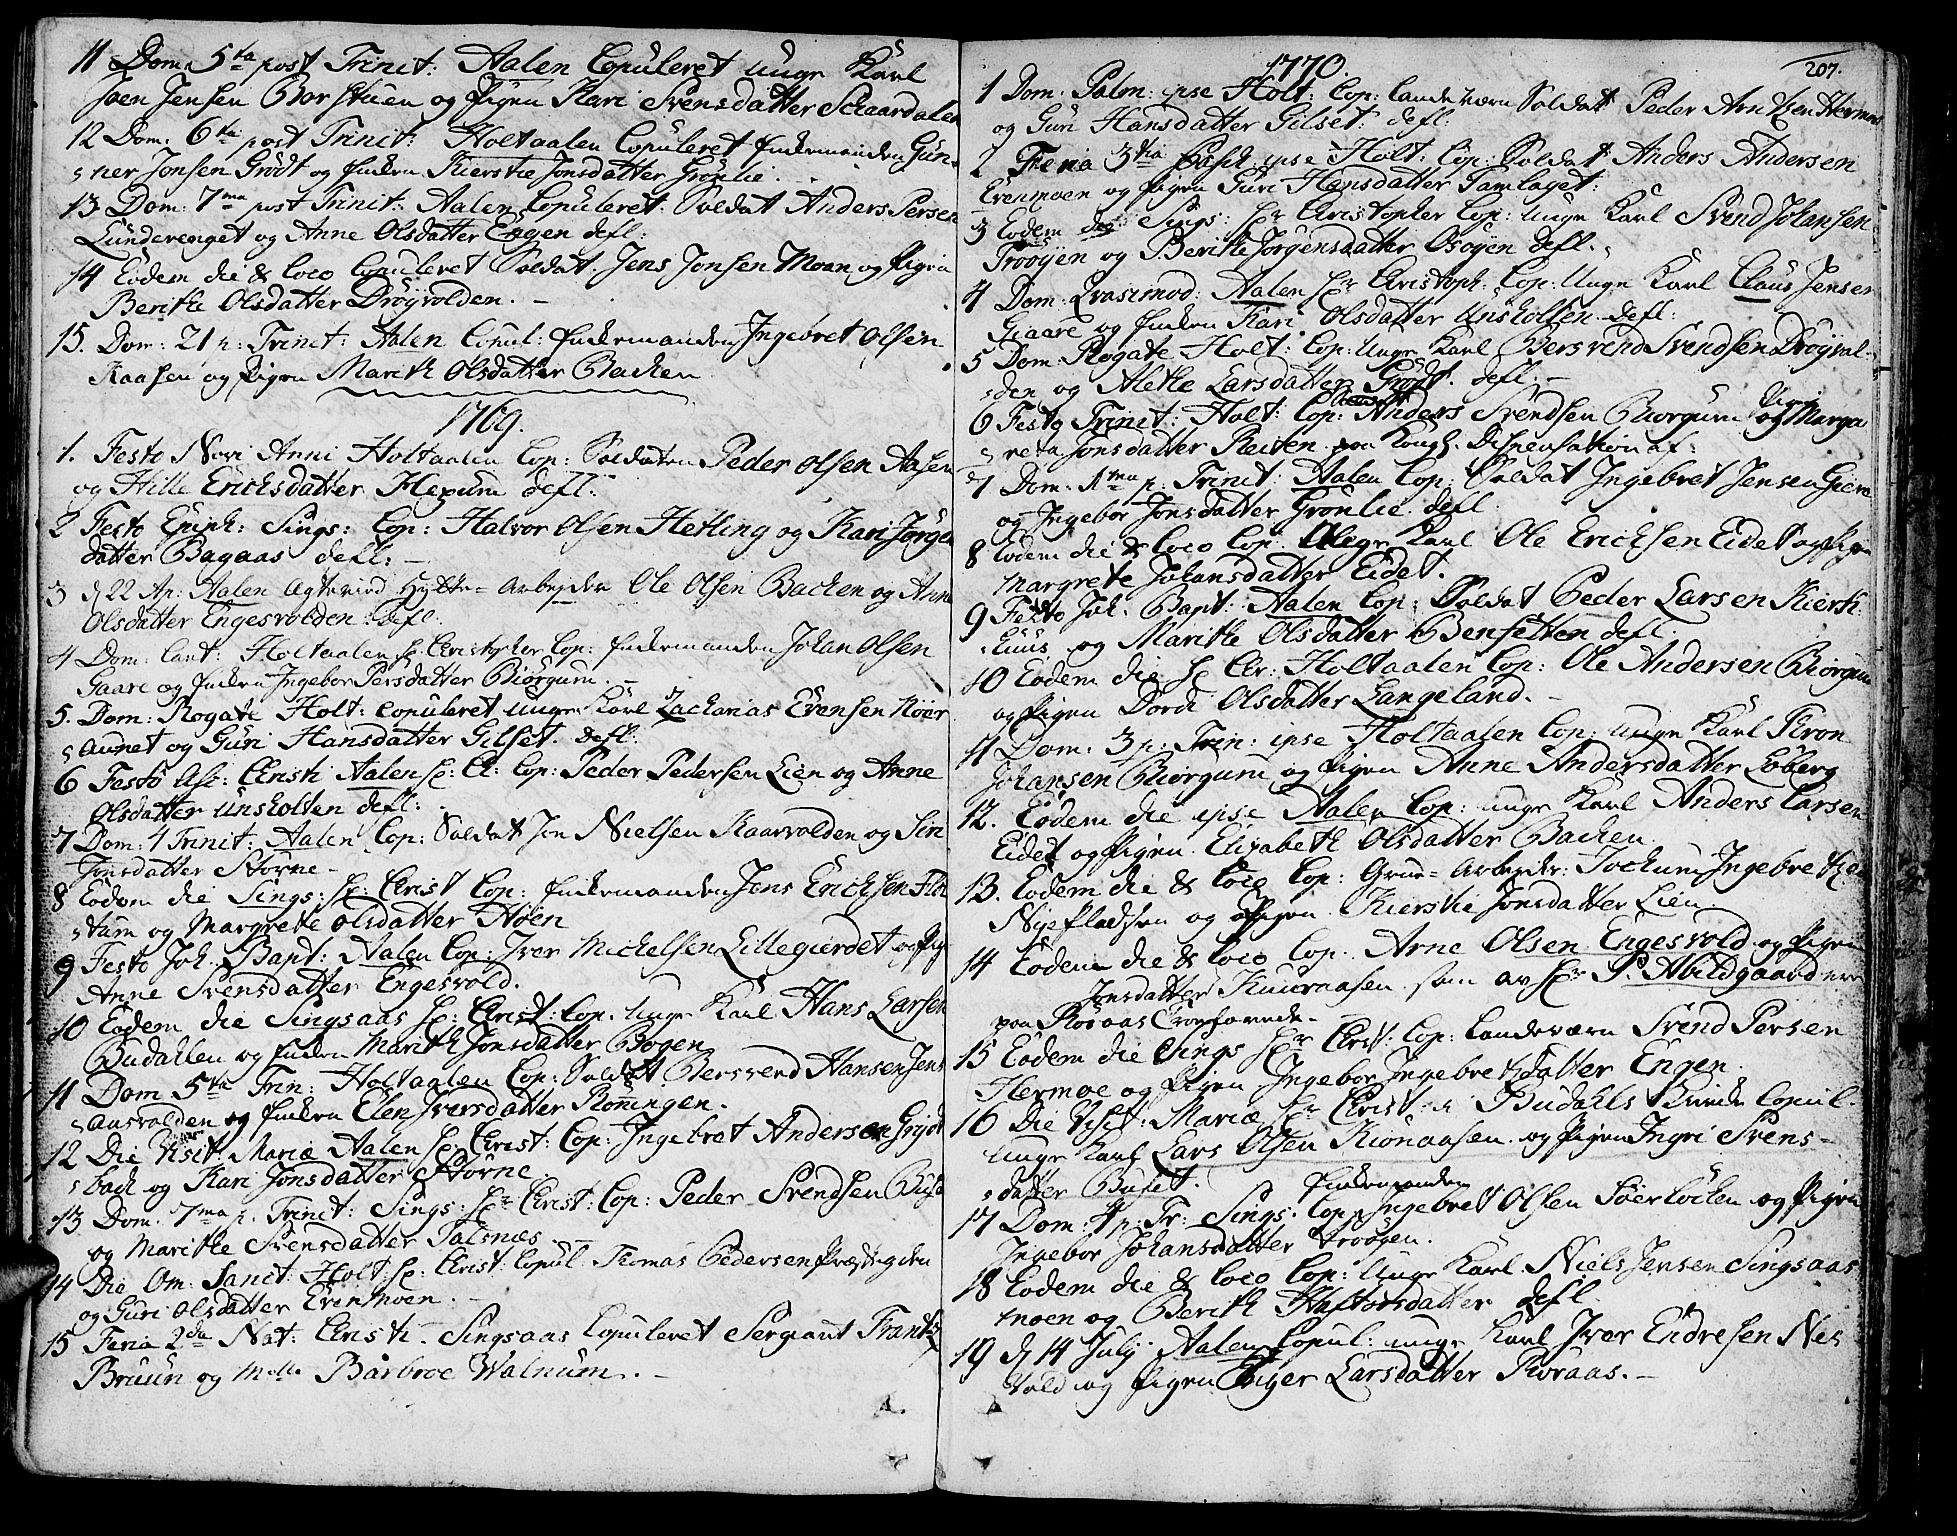 11 Dom: 5ta post Trinit: Aalen Copuleret unge Karl
Joen Jensen Borstuen og Pigen Kari Svensdatter Schaardalen
12 Dom: 6ta post Trinit: Holtaalen Copuleret Enkemanden Gun-
ner Jonsen Grödt og Enken Kierstie Jonsdatter Grönlie.
13 Dom: 7ma post Trinit: Aalen Copuleret Soldat Anders Persen
Lunderenget og Anne Olsdatter Engen defl:
14 Eodem die & loco Copuleret Soldat Jens Jonsen Moan og Pigen
Berithe Olsdatter Dröyvolden. -
15. Dom: 21 p: Trinit: Aalen Copul: Enkemanden Ingebret Olsen
Kaasen og Pigen Marith Olsdatter Backen
1769.
1. Festo Novi Anni Holtaalen Cop: Soldaten Peder Olsen Aasen
og Hille Ericksdatter Flexum defl:
2 Festo Epiph: Sings: Cop: Halvor Olsen Hetling og Kari Jörgen
datter Bagaas defl: -
3 d 22 Ap: Aalen Agtevied Hytte-Arbeyder Ole Olsen Backen og Anne
Olsdatter Engesvolden defl.
4 Dom: Cant: Holtaalen Hr Christopher Cop: Enkemanden Johan Olsen
Gaare og Enken Ingebor Persdatter Biörgum. -
5. Dom: Rogate Holt: Copuleret unge Karl Zacharias Evensen Köör-
aunet og Guri Hansdatter Gilset. defl:
6 Festo Asc: Christi Aalen Hr: Ch: Cop: Peder Pedersen Lien og Anne
Olsdatter Unsholten defl:
7 Dom: 4 Trinit: Aalen Cop: Soldat Jon Nielsen Kaarvolden og Siri
Jonsdatter Storne -
8 Eodem die Sings: Hr: Christ Cop: Enkemanden Jens Ericksen Flat-
tum og Margrette Olsdatter Höen
9 Festo Joh. Bapt: Aalen Cop: Iver Michelsen Lillegierdet og Pig:
Anne Svensdatter Engesvold.
10 Eodem die Singsaas Hr: Christ: Cop: unge Karl Hans Larsen
Budahlen og Enken Marith Jonsdatter Bogen
11 Dom 5ta Trin: Holtaalen Cop: Soldat Bersvend Hansen Jens-
aasvolden og Enken Elen Iversdatter Rönningen.
12 Die Visit: Mariæ Aalen Hr: Christ: Cop: Ingebret Andersen Gryt-
back og Kari Jonsdatter Storne
13 Dom: 7ma p. Trinit: Sings: Hr Christ: Cop: Peder Svendsen Buset
og Marithe Svensdatter Talsnæs -
14 Die Om: Sanct: Holt Hr: Christ: Copul: Thomas Pedersen Præstegden
og Guri Olsdatter Evenmoen. -
15 Feria 2da Nat: Christi. Singsaas Copuleret Sergiant Frantz
Bruun og Mlle Barbroe Walnum. -
207.
1770.
1 Dom: Palm: ipse Holt: Cop: Landeværn Soldat Peder Arntzen Hermoe
og Guri Hansdatter Gilset: defl:
2 Feria 3tia Pasch ipse Holt: Cop: Soldat Anders Andersen
Evenmoen og Pigen Guri Hansdatter Tamlaget:
3 Eodem die Sings: Hr Christopher Cop: unge Karl Svend Johansen
Tröögen og Berithe Jörgensdatter Osöyen defl.
4 Dom: Qvasimod: Aalen Hr Christoph: Cop: Unge Karl Claus Jensen
Giaare og Enken Kari Olsdatter Unsholten defl:
5 Dom: Rogate Holt: Cop: Unge Karl Bersvend Svendsen Dröyvol-
den og Alethe Larsdatter Grödt. defl: -
6 Festo Trinit: Holt: Cop: Anders Svendsen Biorgum og Pigen Marga-
reta Jonsdatter Reiten paa Kongl. Dispensation af:
7 Dom. 1ma p. Trinit: Aalen Cop: Soldat Ingebret Jensen Giere
og Ingebor Jonsdatter Grönlie. defl.
8 Eodem die & loco Cop: Unge Karl Ole Ericksen Eidet og Pigen
Margrete Johansdatter Eidet.
9 Festo Joh. Bapt: Aalen Cop: Soldat Peder Larsen Kirch-
huus og Marithe Olsdatter Bensetten defl.
10 Eodem die Hr Chr: Holtaalen Cop: Ole Andersen Biörgum
og Pigen Dordi Olsdatter Langeland. -
11 Dom: 3 p: Trin: ipse Holtaalen Cop: unge Karl Thron
Johansen Biörgum og Pigen Anne Andersdatter Löberg
12. Eodem die ipse Aalen Cop: unge Karl Anders Larsen
Eidet og Pigen Elisabeth Olsdatter Backen.
13. Eodem die & loco Cop: Grue-Arbeyder: Jochum Ingebretsen
Nyepladsen og Pigen Kierstie Jonsdatter Lien.
14 Eodem die & loco Cop. Arne Olsen Engesvold og Pigen
Jonsdatter Kuuraasen som av Hr P. Abildgaard ere
paa Röraas Troelovede -
15 Eodem die Sings Hr Christ: Cop: Landeværn Svend Persen
Hermoe og Pigen Ingebor Ingebretzdatter Engen.
16 Die Visit: Mariæ Hr Christ: i Budahls Kircke Copul.
unge Karl Lars Olsen Kiönaasen og Pigen Ingri Svens-
datter Buset.
17 Dom: 4 p: Tr: Sings: Cop: Enkemanden Ingebret Olsen Söerloeten og Pigen
Ingebor Johansdatter Tröögen.
18 Eodem die & loco Cop: Unge Karl Niels Jensen Singsaas
moen og Berith Haftorsdatter defl.
19 d 14 July Aalen Copul: unge Karl Iver Endresen Nes
vold og Pigen Inger Larsdatter Röraas. -